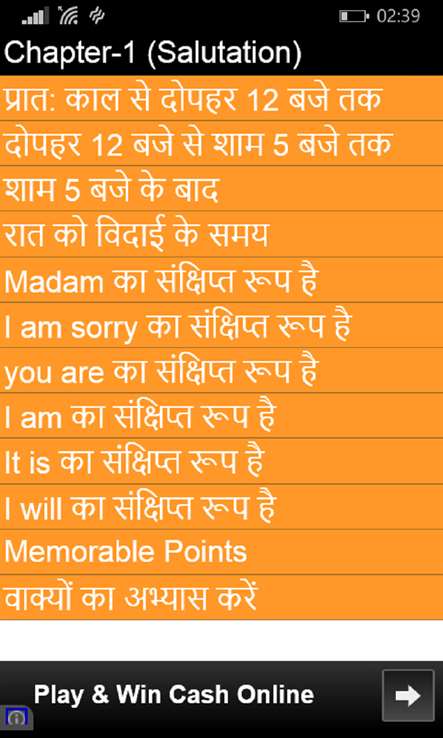 02:39
Chapter-1 (Salutation)
प्रात: काल से दोपहर 12 बजे तक
दोपहर 12 बजे से शाम 5 बजे तक
शाम 5 बजे के बाद
रात को विदाई के समय
Madam का संक्षिप्त रूप है
I am sorry का संक्षिप्त रूप है
you are का संक्षिप्त रूप है
I am का संक्षिप्त रूप है
It is का संक्षिप्त रूप है
I will का संक्षिप्त रूप है
Memorable Points
वाक्यों का अभ्यास करें
Play & Win Cash Online